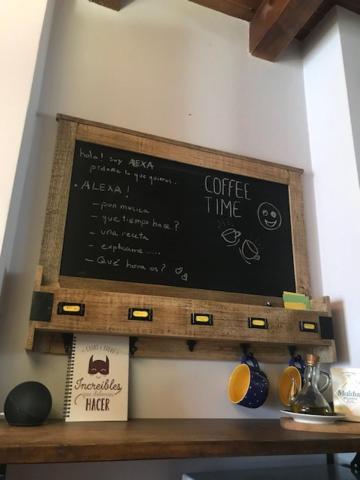 hola! soy ALEXA
pideme lo que quieras...
• ALEXA!
- pon musica
- que tiempo hace?
- una receta
- explicame ....
- Qué hora es?
COFFEE
TIME
Increíbles
que debemos
HACER